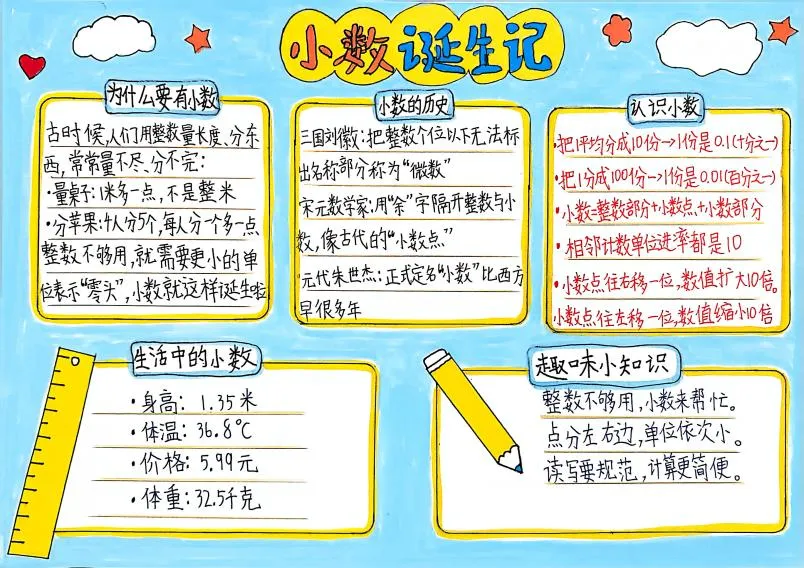 小数诞生记
为什么要有小数
古时候,人们用整数量长度、分东
西,常常量不尽、分不完:
·量桌子:1米多一点,不是整米
·分苹果:4人分5个,每人分一个多一点
整数不够用,就需要更小的单
位表示“零头”,小数就这样诞生啦
小数的历史
三国刘徽:把整数个位以下无法标
出名称部分称为“微数”
宋元数学家:用“余”字隔开整数与小
数,像古代的“小数点”
元代朱世杰:正式定名“小数”比西方
早很多年
认识小数
·把1平均分成10份→1份是0.1(十分之一)
·把1分成100份→1份是0.01(百分之一)
·小数=整数部分+小数点+小数部分
·相邻计数单位进率都是10
·小数点往右移一位,数值扩大10倍。
小数点往左移一位,数值缩小10倍
生活中的小数
·身高:1.35米
·体温:36.8℃
·价格:5.99元
·体重:32.5千克
趣味小知识
整数不够用,小数来帮忙。
点分左右边,单位依次小。
读写要规范,计算更简便。